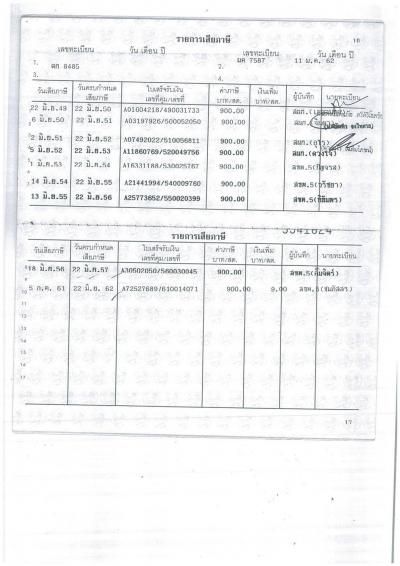 รายการเสียภาษี 16
เลขทะเบียน วัน เดือน ปี เลขทะเบียน วัน เดือน ปี
1. ตก 8485 2. ผค 7587 11 ม.ค. 62
3. 4.
วันเสียภาษี วันครบกำหนดเสียภาษี ใบเสร็จรับเงิน เลขที่คุม/เลขที่ ค่าภาษี บาท/สต. เงินเพิ่ม บาท/สต. ผู้บันทึก นายทะเบียน
22 มิ.ย.49 22 มิ.ย.50 A01604218/490031733 900.00 สมก.
6 มิ.ย.50 22 มิ.ย.51 A03197926/500052050 900.00 สมก.
2 มิ.ย.51 22 มิ.ย.52 A07492022/510056811 900.00 สมก.
5 มิ.ย.52 22 มิ.ย.53 A11860769/520049756 900.00 สมก.(ดวงใจ)
มิ.ย.53 22 มิ.ย.54 A16331188/530025767 900.00 สขต.5
14 มิ.ย.54 22 มิ.ย.55 A21441994/540009760 900.00 สขต.5(ปรัชยา)
13 มิ.ย.55 22 มิ.ย.56 A25773652/550020399 900.00 สขต.5
5541024
รายการเสียภาษี
วันเสียภาษี วันครบกำหนดเสียภาษี ใบเสร็จรับเงิน เลขที่คุม/เลขที่ ค่าภาษี บาท/สต. เงินเพิ่ม บาท/สต. ผู้บันทึก นายทะเบียน
18 มิ.ย.56 22 มิ.ย.57 A30502050/560030045 900.00 สขต.5
5 ก.ค. 61 22 มิ.ย. 62 A72527689/610014071 900.00 9.00 สขต.5
10
11
12
13
14
15
16
17
17